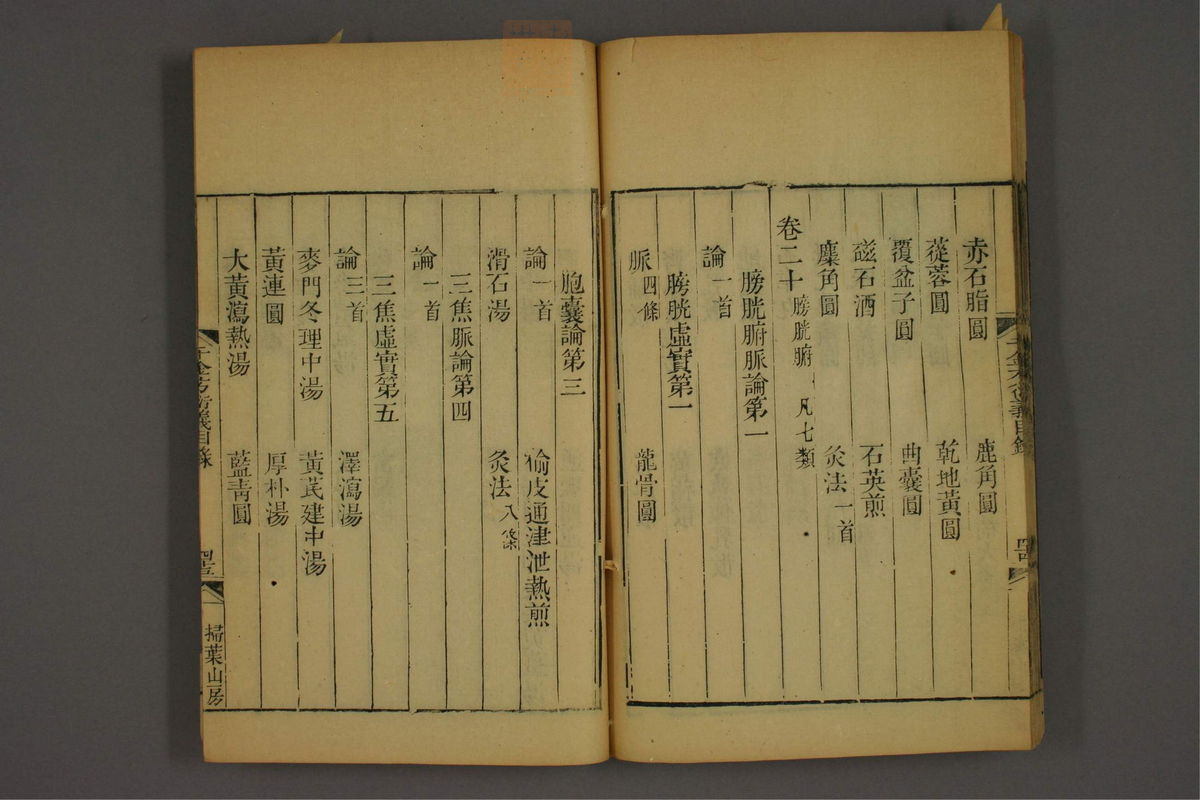 赤石脂圓 鹿角圓
蓯蓉圓 乾地黃圓
覆盆子圓 曲囊圓
磁石酒 石英煎
麋角圓 灸法一首
卷二十 膀胱腑 凡七類
膀胱腑脈論第一
論一首
膀胱虛實第一
脈四條 龍骨圓
胞囊論第三
論一首 榆皮通津泄熱煎
滑石湯 灸法八條
三焦脈論第四
論一首
三焦虛實第五
論三首 澤瀉湯
麥門冬理中湯 黃芪建中湯
黃連圓 厚朴湯
大黃瀉熱湯 藍青圓
千金方衍義目錄 四十五 掃葉山房